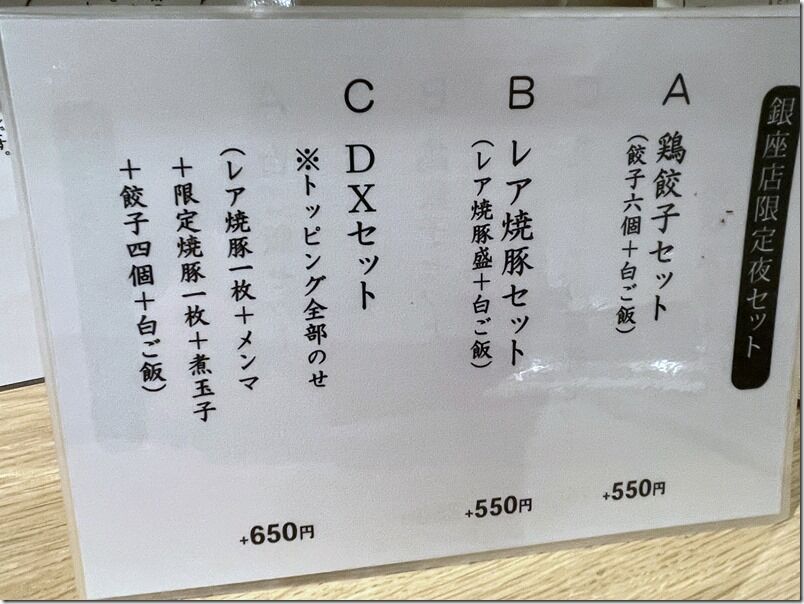 銀座店限定夜セット
A 鶏餃子セット
(餃子六個+白ご飯)
+550円
B レア焼豚セット
(レア焼豚盛+白ご飯)
+550円
C DXセット
※トッピング全部のせ
(レア焼豚一枚+メンマ
+限定焼豚一枚+煮玉子
+餃子四個+白ご飯)
+650円
です。